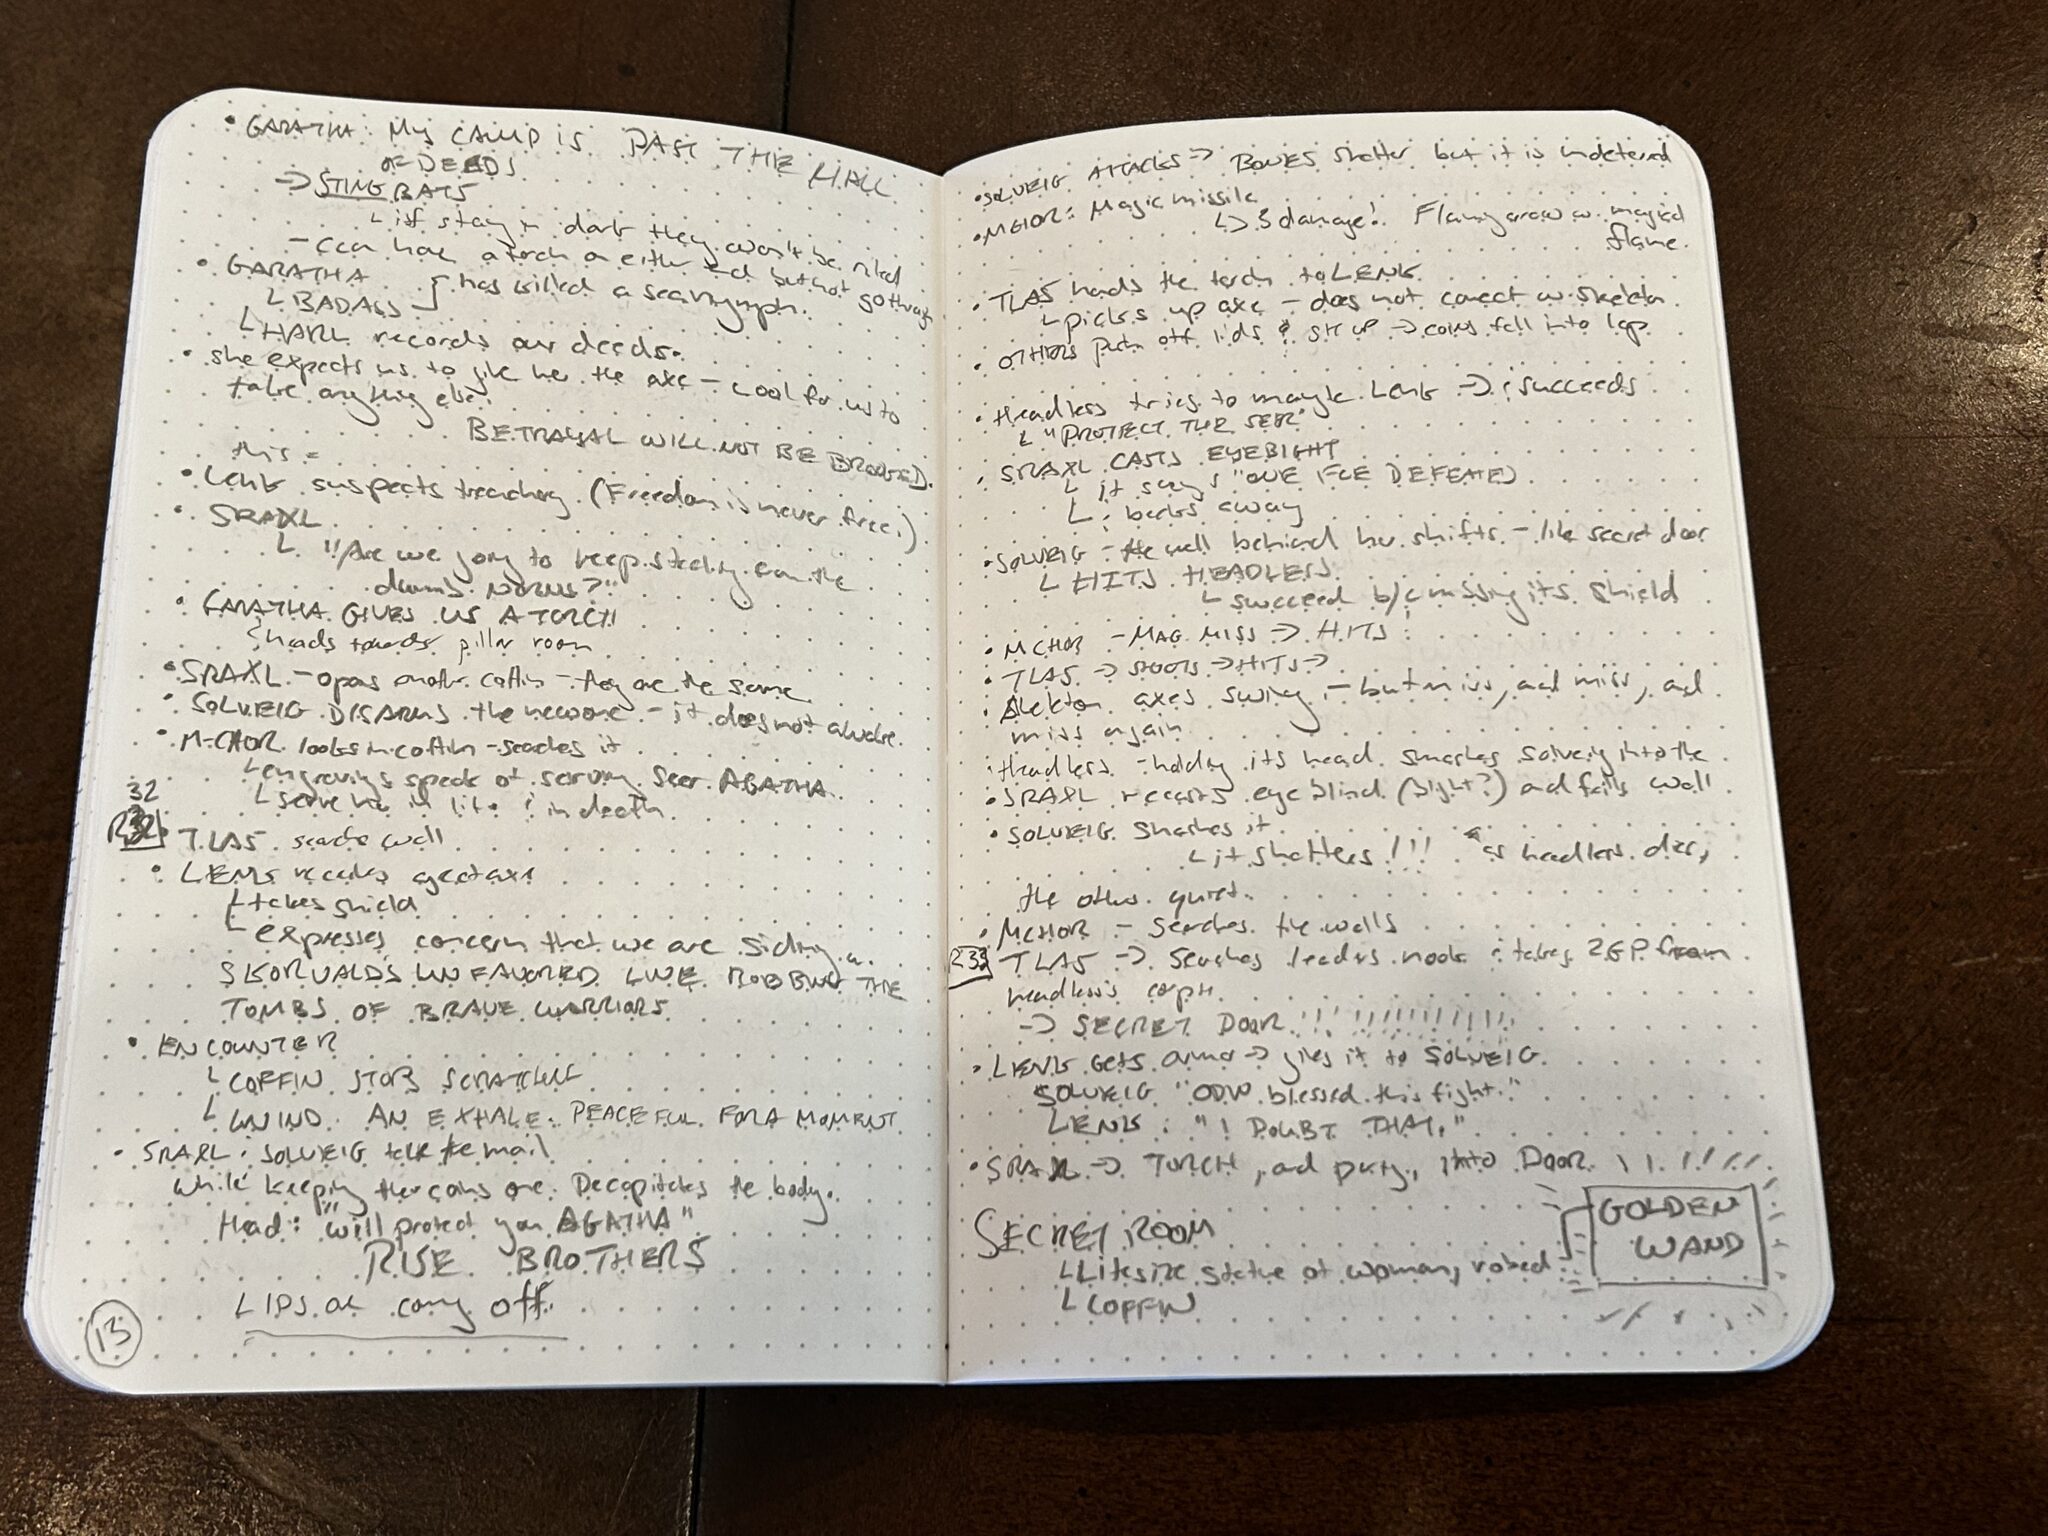 • GARATHA: MY CAMP IS PAST THE HALL
OF DEEDS
→ STING BATS
└ if stay in dark they won't be riled
- can have a torch on either end but not go through
• GARATHA } has killed a
└ BADASS
└ HARL records our deeds.
• she expects us to give her the axe - cool for us to
take anything else.
BETRAYAL WILL NOT BE BROOKED.
this =
• LENK suspects treachery. (Freedom is never free.)
• SRAXL
└ "Are we going to keep stealing from the
damn NORNS?"
• GARATHA GIVES US A TORCH
heads towards pillar room
• SRAXL - opens another coffin - they are the same
• SOLVEIG DISARMS the new one - it does not awake.
• MCHOR looks in coffin - searches it
└ engravings speak of serving Seer AGATHA
└ serve her in life & in death
32
R32 • TLAS search wall
• LENK receives great axe
└ takes shield
└ expresses concern that we are siding w.
SKORVALD'S UNFAVORED LIKE ROBBING THE
TOMBS OF BRAVE WARRIORS
• ENCOUNTER
└ COFFIN STOPS SCRATCHING
└ WIND. AN EXHALE. PEACEFUL FOR A MOMENT
• SRAXL & SOLVEIG take the mail
while keeping the coins on. Decapitates the body.
Head: "will protect you AGATHA"
RISE BROTHERS
LIPS are coming off.
13
• SOLVEIG ATTACKS → BONES shatter but it is undeterred
• MCHOR: Magic missile
↳ 3 damage! Flaming arrow w. magical
flame.
• TLAS hands the torch to LENK
└ picks up axe - does not connect w. skeleton
• OTHERS push off lids & sit up → coins fall into lap
• Headless tries to LENK → succeeds
└ "PROTECT THE SEER"
• SRAXL CASTS EYEBIGHT
└ it says "ONE FOE DEFEATED
└ & backs away
• SOLVEIG - the wall behind her shifts - like secret door
└ HITS HEADLESS
└ succeed b/c missing its shield
• MCHOR - MAG. MISS → HITS!
• TLAS → SHOOTS → HITS →
• Skeleton axes swing - but miss, and miss, and
miss again
• Headless - holding its head smashes Solveig into the
wall
• SRAXL recasts eye blind (bight?) and fails
• SOLVEIG smashes it
└ it shatters!!! as headless dies,
the others quiet.
• MCHOR - Searches the walls
R33 TLAS → Searches leaders nook & takes 2GP from
headless's corpse
→ SECRET DOOR !!!!!!!!!!!!!
• LENK gets armor → gives it to SOLVEIG
SOLVEIG "ODIN blessed this fight."
LENK: "I DOUBT THAT."
• SRAXL → TORCH, and party, into DOOR !!!!!!
SECRET ROOM
└ Lifesize statue of woman, robed
└ COFFIN
GOLDEN
WAND